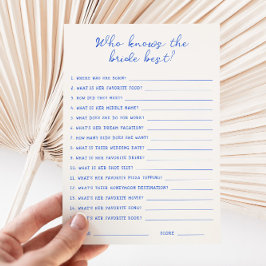 Who knows the
bride best?
1. WHERE WAS SHE BORN?
2. WHAT IS HER FAVORITE FOOD?
3. HOW DID THEY MEET?
4. WHAT IS HER MIDDLE NAME?
5. WHAT DOES SHE DO FOR WORK?
6. WHAT'S HER DREAM VACATION?
7. HOW MANY KIDS DOES SHE WANT?
8. WHAT IS THEIR WEDDING DATE?
9. WHAT IS HER FAVORITE DRINK?
10. WHAT IS HER SHOE SIZE?
11. WHAT'S HER FAVORITE PIZZA TOPPING?
12. WHAT'S THEIR HONEYMOON DESTINATION?
13. WHAT'S HER FAVORITE MOVIE?
14. WHAT'S HER FAVORITE SONG?
15. WHAT'S HER FAVORITE BOOK?
SCORE